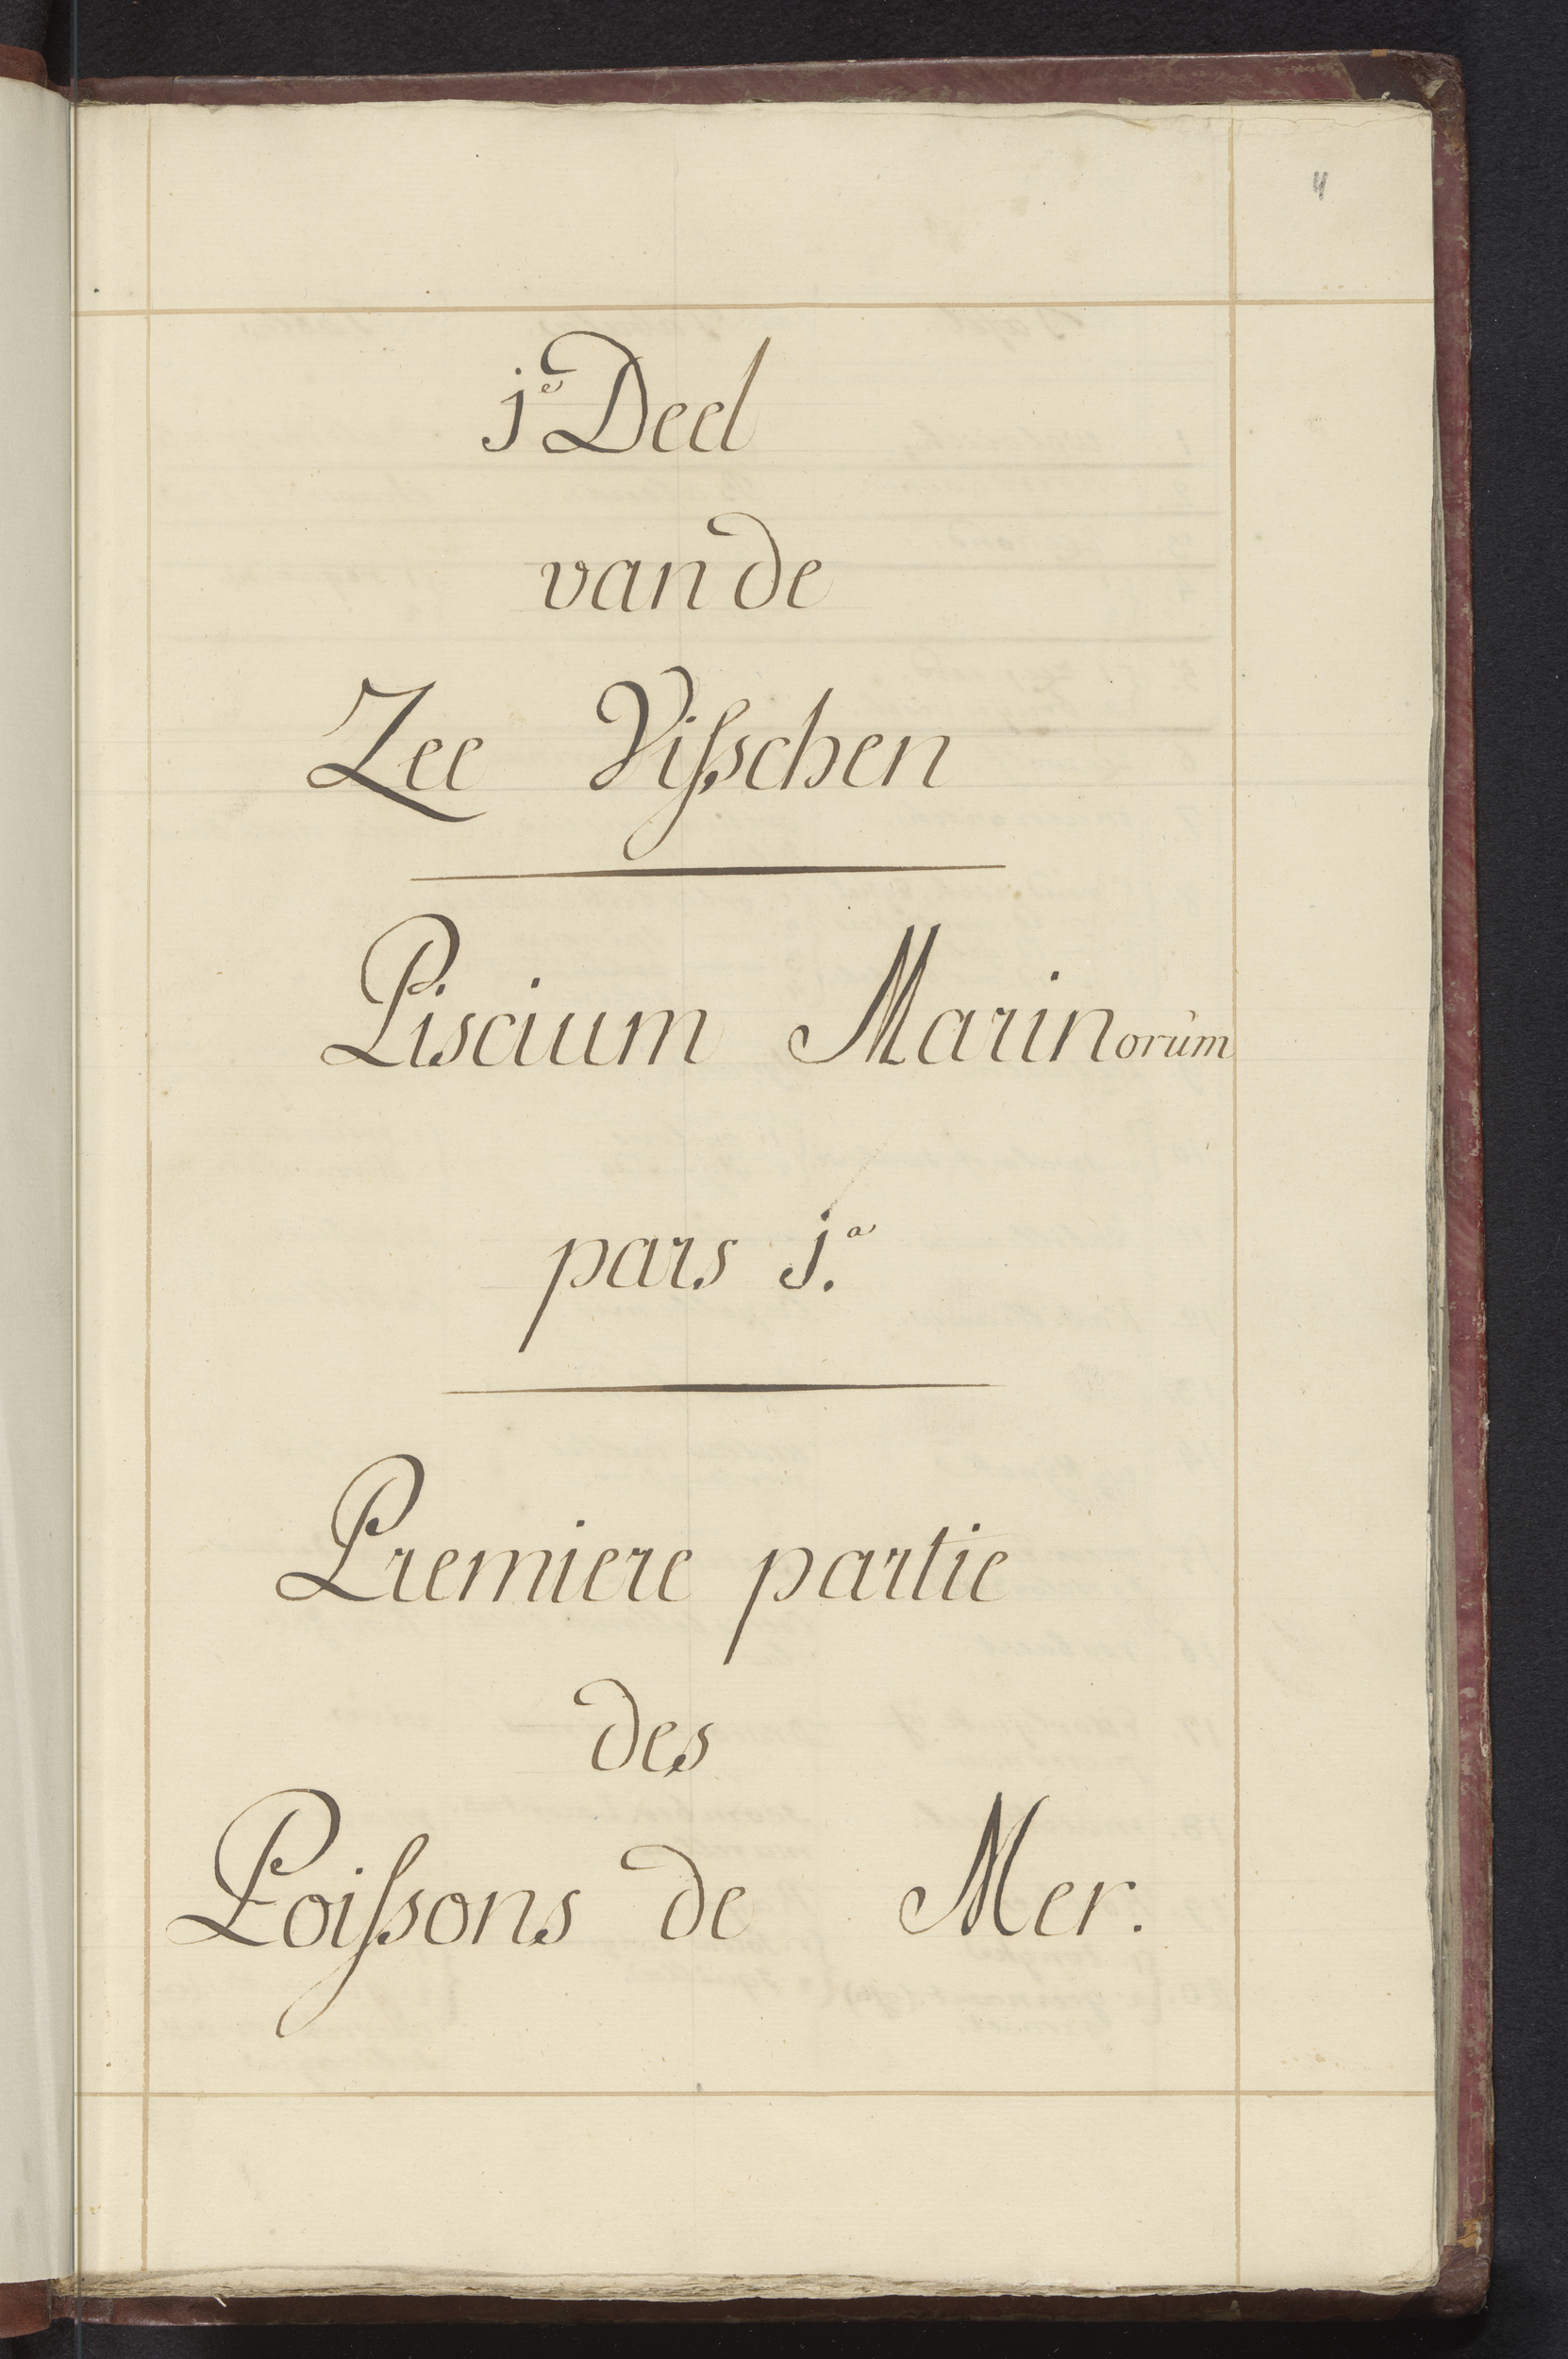 4
j.e Deel
van de
Zee Vißschen
Piscium Marinorùm
pars j.a
Premiere partie
des
Poißsons de Mer.